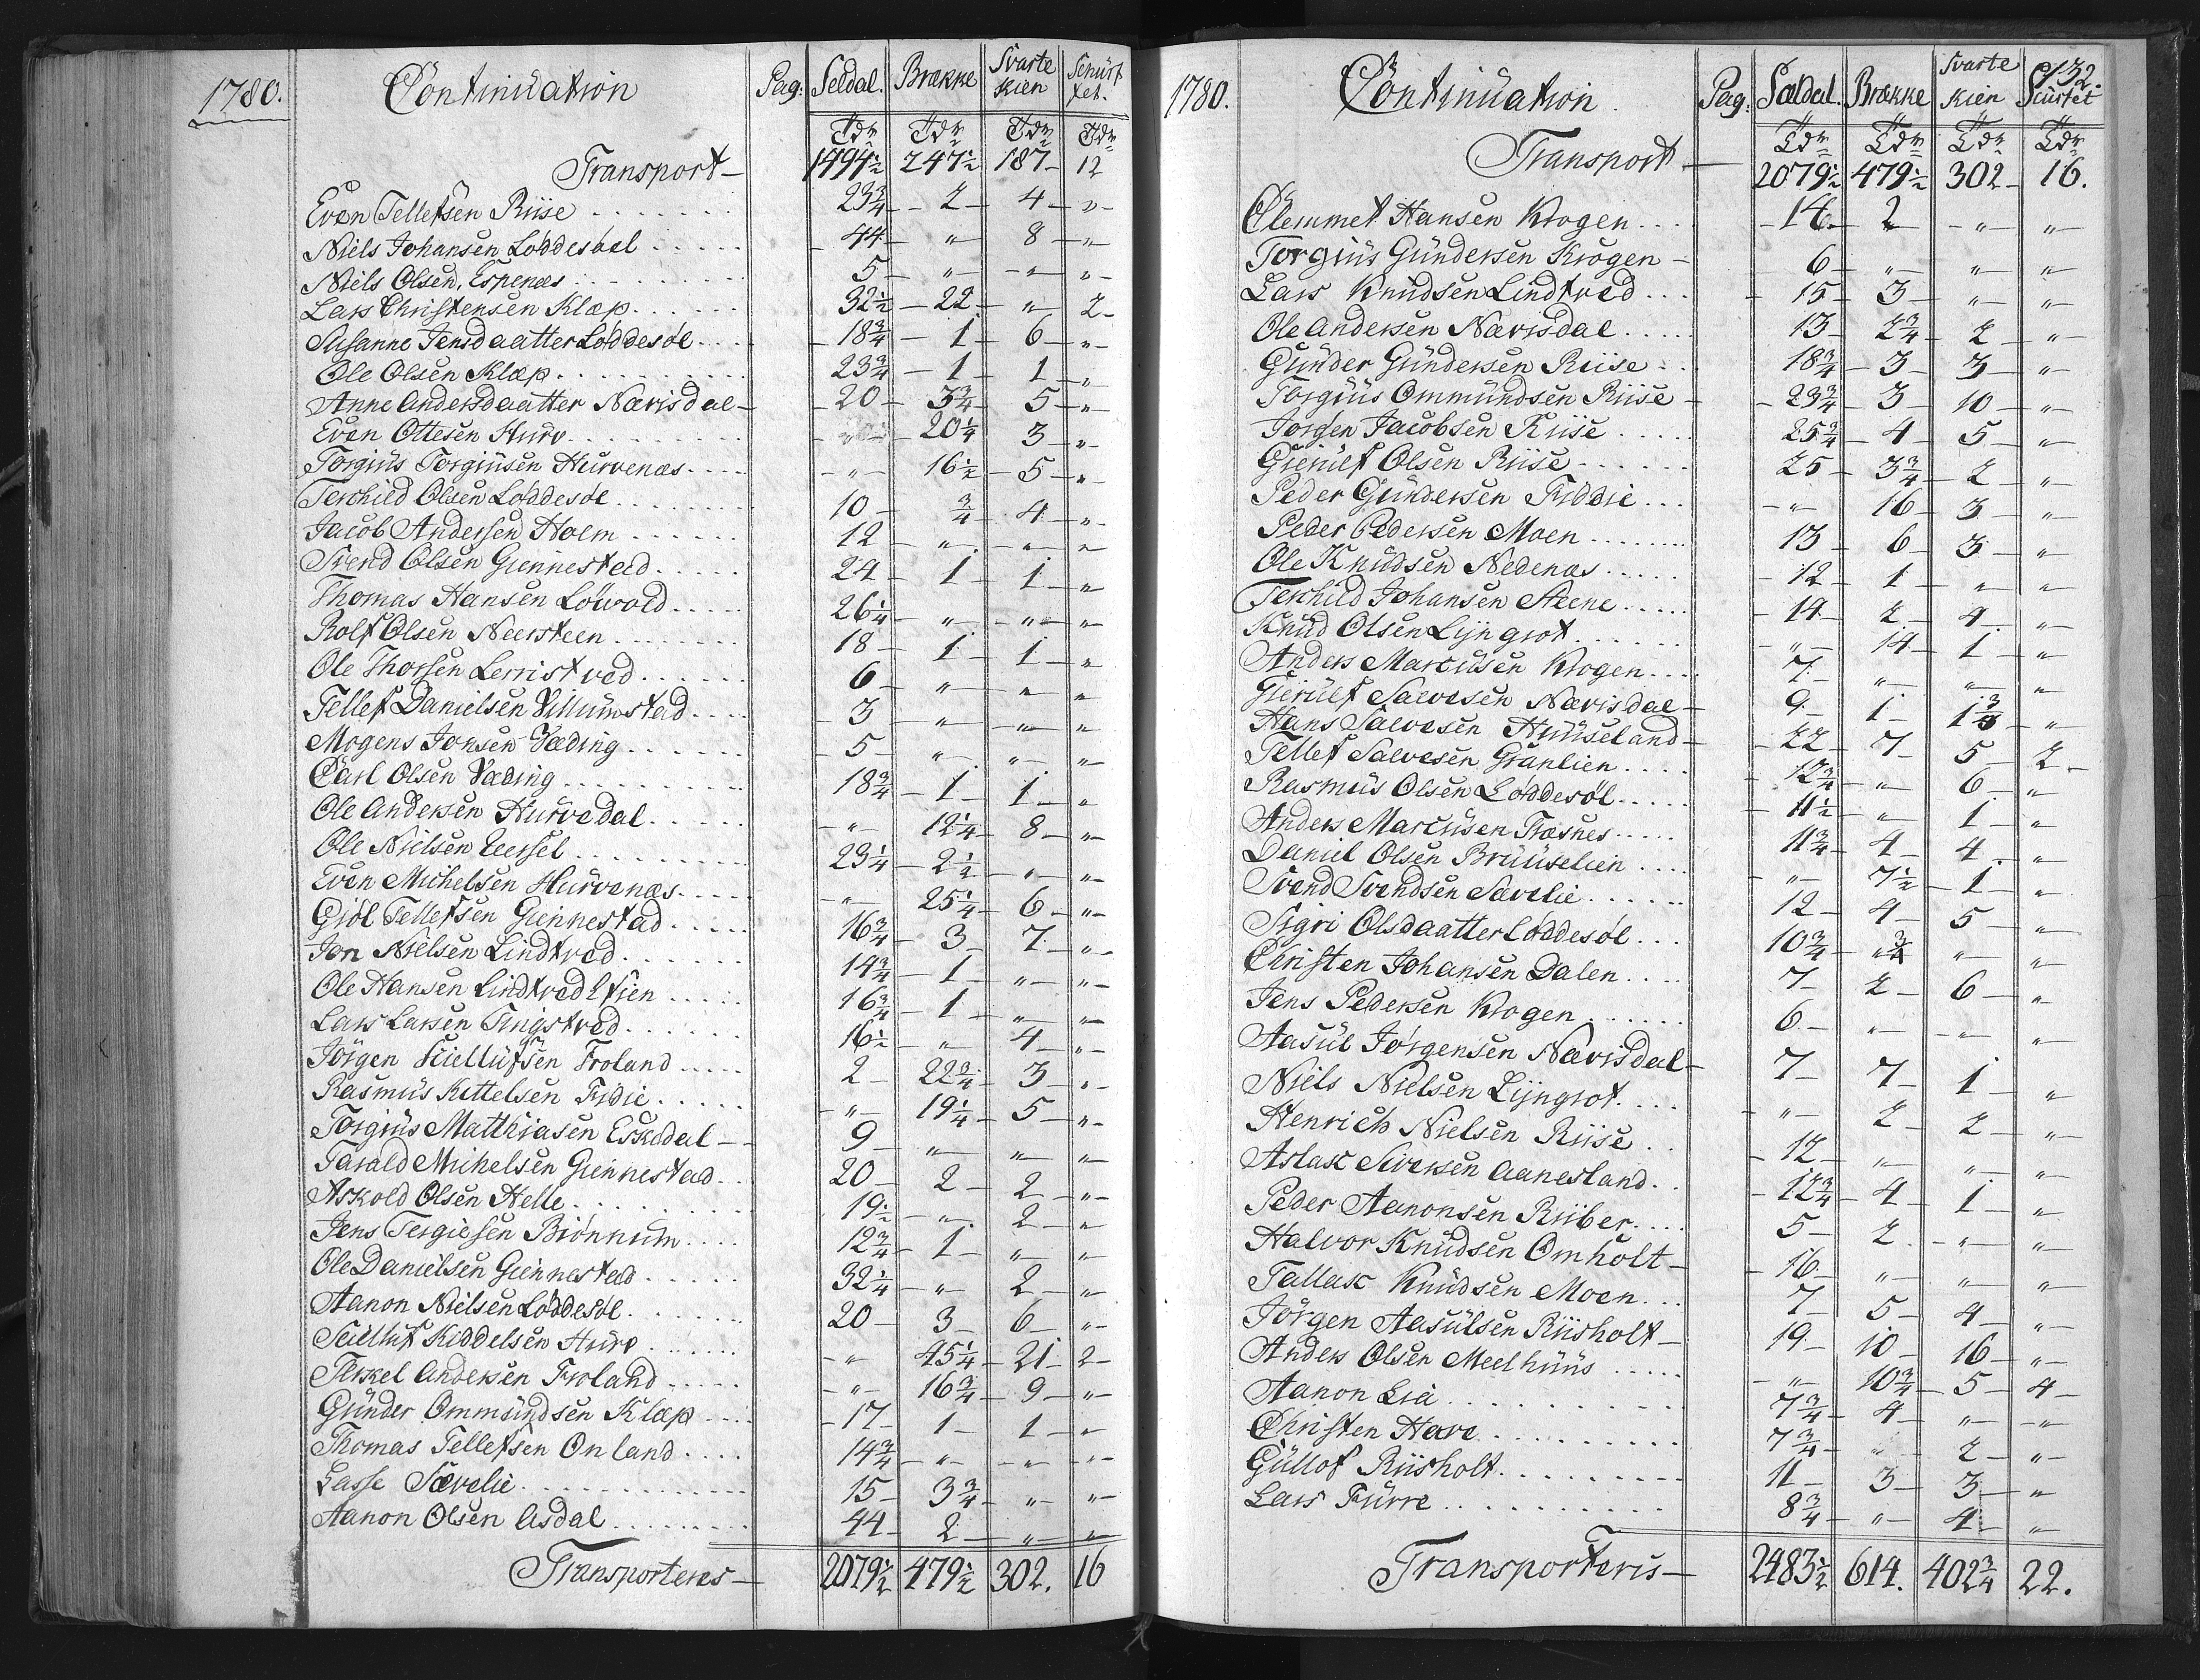 1780. Continuation Pag: Seldal. Brække Svarte kien Schürf tet.
Tdr Tdr Tdr Tdr
Transport — 1494½ 247½ 187 – 12
Even Tellefsen Riise 23¾ – 2 – 4 – „ –
Niels Johansen Løddesøel 44 – „ – 8 – „
Niels Olsen, Espenæs 5 – „ – „ – „ –
Lars Christensen Klæp 32½ – 22 – „ – 2 –
Susanne Jensdaatter Løddesøl 18¾ – 1 – 6 – „ –
Ole Olsen Klæp 23¾ – 1 – 1 – „
Anne Andersdaatter Nævisdal – 20 – 3¾ – 5 – „
Even Ottesen Hurv – „ – 20¼ 3 – „
Torgius Torgiusen Hurvenæs – „ – 16½ – 5 – „
Terchield Olsen Løddesøl 10 – ¾ 4 – „
Jacob Andersen Holm 12 – „ – „ – „
Svend Olsen Giennestad 24 – 1 – 1 – „
Thomas Hansen Løwold 26¼ – „ – „ – „
Rolf Olsen Neersteen 18 – 1 – 1 – „
Ole Thorsen Lerristved 6 – „ – „ – „
Tellef Danielsen Villumstad 3 – „ – „ – „
Mogens Jonsen Væding 5 – „ – „ – „
Carl Olsen Væding 18¾ – 1 – 1 – „
Ole Andersen Hurvedal – „ – 12¼ – 8 – „
Ole Nielsen Eersel 23¼ – 2½ – „ – „
Even Michelsen Hurvenæs – „ – 25¼ – 6 – „
Giøl Tellefsen Giennestad 16¾ – 3 – 7 – „
Jon Nielsen Lindtved 14¾ – 1 – „ – „
Ole Hansen Lindtved Eien 16¾ – 1 – „ – „
Lars Larsen Tingstved 16½ – „ – 4 – „
Jörgen Kiellufsen Froland 2 – 22¾ – 3 – „
Rasmus Kittelsen Fidie – „ – 19¼ – 5 – „
Torgius Matthiasen Eskedal – 9 – „ – „ – „
Tarald Michelsen Giennestad 20 – 2 – 2 – „
Askold Olsen Helle 19½ – „ – 2 – „
Jens Tergiesen Biønnum 12¾ – 1 – „ – „
Ole Danielsen Giennestad 32¼ – „ – 2 – „
Aanon Nielsen Løddesøl 20 – 3 – 6 – „
Seiclluf Kiddelsen Hurv – „ 45¼ – 21 – 2 –
Terkel Andersen Froland – „ – 16¾ – 9 – „
Günder Ommundsen Klæp – 17 – 1 – 1 – „
Thomas Tellefsen Onland 14¾ – „ – „ – „
Lasse Sævelie 15 – 3¾ – „ – „
Aanon Olsen Asdal 44 – 2 – „ – „
Transporteres – 2079½ 479½ 302. 16
132.
1780. Continuation. Pag: Sældal. Brække Svarte kien Scürtet
Tdr Tdr Tdr Tdr
Transport — 2079½ 479½ 302 – 16.
Clemmet Hansen Krogen – 14 – 2 – „ – „
Torgius Gündersen Krogen – 6 – „ – „ – „
Lars Knudsen Lindtved – 15 – 3 – „ – „
Ole Andersen Nævisdal 13 – 2¾ – 2 – „
Günder Gündersen Riise 18¾ – 3 – 3 – „
Torgius Ommündsen Riise – 23¾ – 3 – 10 – „
Jørgen Jacobsen Riise 25¾ – 4 – 5 – „
Gierulf Olsen Riise 25 – 3¾ – 2 – „
Peder Gündersen Fiddie – „ – 16 – 3 – „
Peder Pedersen Moen 13 – 6 – 3 – „
Ole Knudsen Nedenæs – 12 – 1 – „ – „
Terchild Johansen Steene – 14 – 2 – 4 – „
Knud Olsen Lijngrot – „ – 14 – 1 – „
Anders Marcusen Krogen 7 – „ – „ – „
Gierulf Salvesen Nævisdal – 9 – 1 – 1¾ – „
Hans Salvesen Huuseland – 22 – 7 – 5 – 2 –
Tellef Salvesen Granlien – 12¾ – „ – 6 – „
Rasmus Olsen Løddesøl – 11½ – „ – 1 – „
Anders Marcusen Træsnes 11¾ – 4 – 4 – „
Daniel Olsen Bruuselien – „ – 7½ – 1 – „
Svend Svendsen Sævelie 12 – 4 – 5 – „
Sigri Olsdaatter Løddesøl 10¾ – ¾ – „ – „
Christen Johansen Dalen 7 – 2 – 6 – „
Jens Pedersen Krogen 6 – „ – „ – „
Aasul Jørgensen Nævisdal – 7 – 7 – 1 – „
Niels Nielsen Lijngrot – „ – 2 – 2 – „
Henrich Nielsen Riise – 12 – „ – „ – „
Aslak Siversen Aanesland – 12¾ – 4 – 1 – „
Peder Aanonsen Riiber 5 – 2 – „ – „
Halvor Knudsen Omholt – 16 – „ – „ – „
Tallax Knudsen Moen 7 – 5 – 4 – „
Jörgen Aasulsen Riisholt – 19 – 10 – 16 – „
Anders Olsen Meelhuus – „ – 10¾ – 5 – 4 –
Aanon Lia 7¾ – 4 – „ – „
Christen Have 7¾ – „ 2 – „
Güllof Riisholt 11 – 3 – 3 – „
Lars Furre 8¾ – „ – 4 – „
Transporteris – 2483½ 614. 402¾ 22.